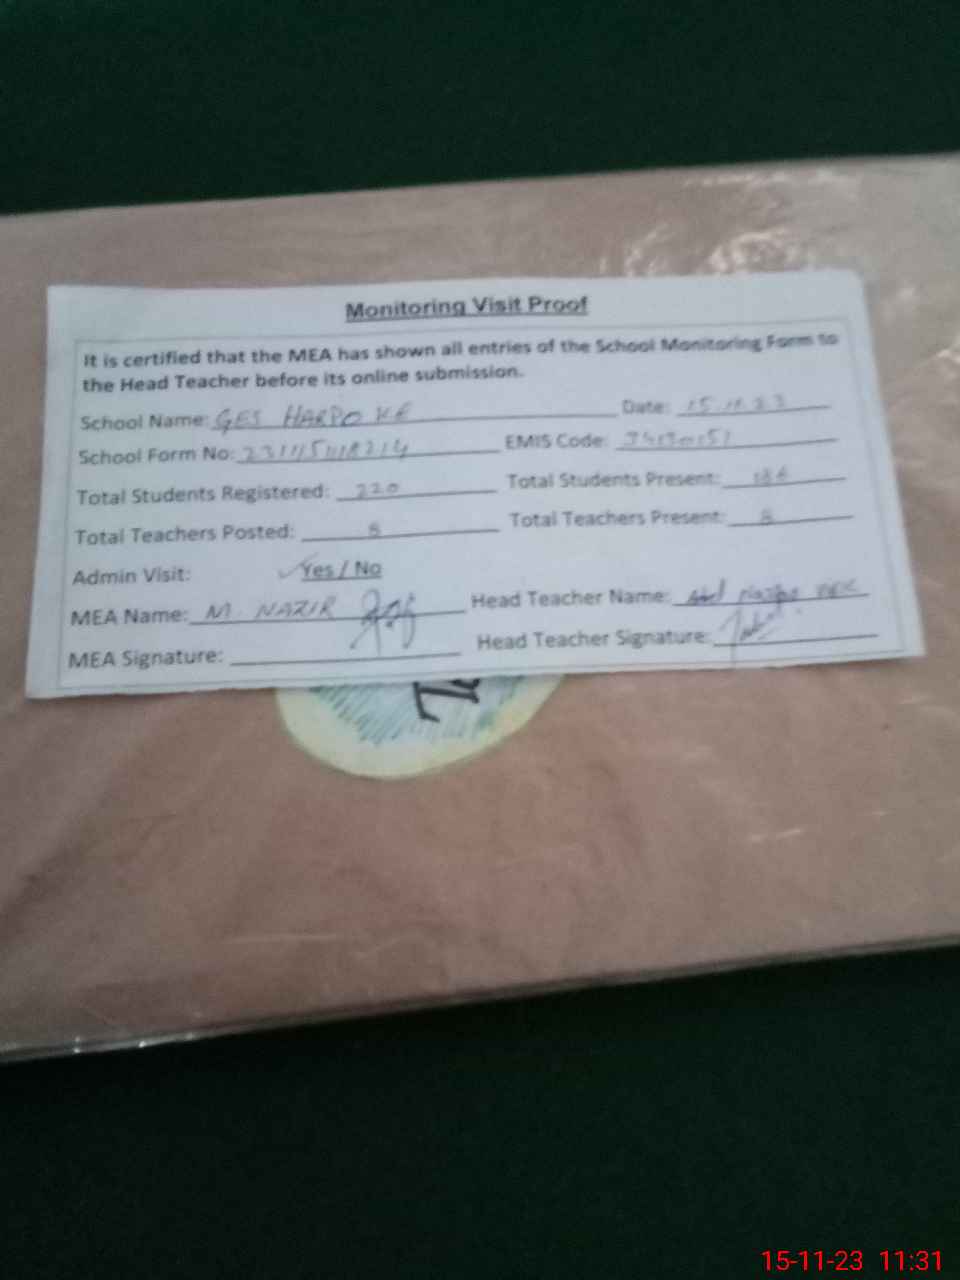 Monitoring Visit Proof
It is certified that the MEA has shown all entries of the School Monitoring Form to
the Head Teacher before its online submission.
School Name: GES HARPOKE Date: 15.11.23
School Form No: EMIS Code:
Total Students Registered: 220 Total Students Present:
Total Teachers Posted: 8 Total Teachers Present: 8
Admin Visit: ✓Yes / No
MEA Name: M. NAZIR Head Teacher Name:
MEA Signature: Head Teacher Signature:
15-11-23 11:31